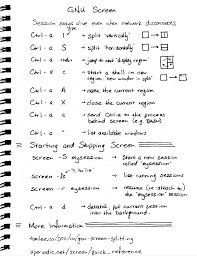 GNU Screen
Session stays alive even when network disconnects
Ctrl-a | → split 'vertically'
Ctrl-a S → split 'horizontally'
Ctrl-a <tab> → jump to next 'display region'
Ctrl-a c → start a shell in new
region, 'new window in split'
Ctrl-a A → name the current region
Ctrl-a X → close the current region
Ctrl-a → send Ctrl-a to the process
behind screen (e.g. Bash)
Ctrl-a " → list available windows
Starting and Stopping Screen
screen -S mysession → Start a new session
called 'mysession'
screen → list running sessions
screen -r mysession → resume (re-attach) to
the 'mysession' session
Ctrl-a d → detatch, put current session
into the background.
More Information
tomlee.co/2011/10/gnu-screen-splitting
aperiodic.net/screen/quick_reference